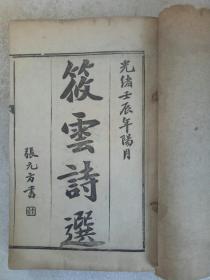 光緒壬辰年陽月
筱雲詩選
張元方書